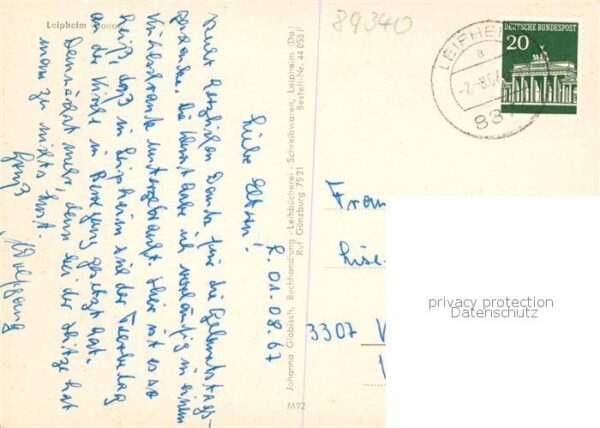 Leipheim Donau
89340
LEIPHEIM
a
-2.-8.67
887
DEUTSCHE BUNDESPOST
20
L. 01.08.67
Liebe Eltern!
Recht herzlichen Dank für die Geburtstags-
habe ich vorläufig in einem
Kühlschrank untergebracht. Hier ist es so
heiß, daß in Leipheim sich der
an der Kirche in Bewegung gesetzt hat.
Demnächst mehr, denn bei der Hitze hat
man zu nichts Lust.
Gruß
Wolfgang
Johanna Grabisch, Buchhandlung - Leihbücherei - Schreibwaren, Leipheim (Do.)
Ruf Günzburg 7521
Bestell-Nr. 44 058 F
M92
3307
privacy protection
Datenschutz